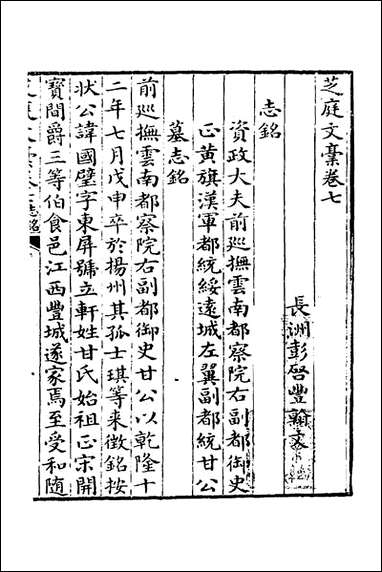 芝庭文稾卷七
長洲彭啓豐翰文
志銘
資政大夫前巡撫雲南都察院右副都御史
正黃旗漢軍都統綏遠城左翼副都統甘公
墓志銘
前巡撫雲南都察院右副都御史甘公以乾隆十
二年七月戊申卒於揚州其孤士琪等来徵銘按
狀公諱國璧字東屏號立軒姓甘氏始祖正宋開
寶間爵三等伯食邑江西豐城遂家焉至受和隨